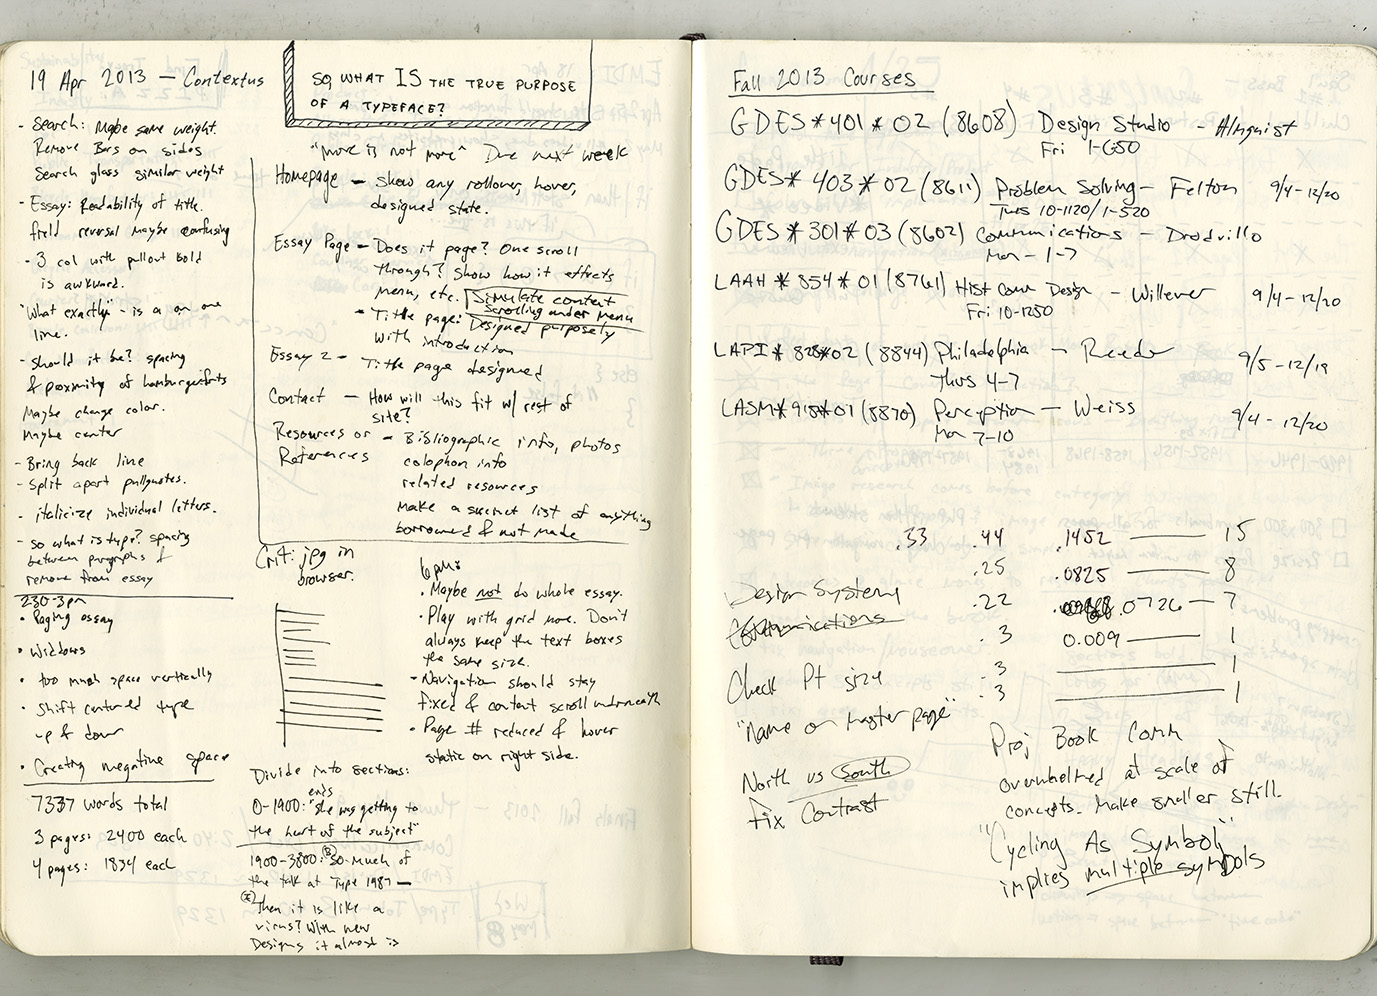 19 Apr 2013 — Contextus
- Search: Maybe same weight.
Remove Bars on sides
Search glass similar weight
- Essay: Readability of title.
field reversal maybe confusing
- 3 col with pullout bold
is awkward.
"What exactly" - is a on one
line.
- Should it be? spacing
& proximity of hamburgerfonts
Maybe change color.
Maybe center
- Bring back line
- Split apart pullquotes.
- italicize individual letters.
- so what is type? spacing
between paragraphs &
remove from essay
230-3pm
• Raging essay
• Widows
• too much space vertically
• Shift centered type
up & down
• Creating negative space
7337 words total
3 pages: 2400 each
4 pages: 1834 each
SO, WHAT IS THE TRUE PURPOSE
OF A TYPEFACE?
"more is not more" Due next week
Homepage — show any rollover, hover,
designed state.
Essay Page — Does it page? One scroll
through? Show how it effects
menu, etc. Simulate content
scrolling under menu
- Title page: Designed purposely
with introduction
Essay 2 — Title page designed
Contact — How will this fit w/ rest of
site?
Resources or - Bibliographic info, photos
References colophon info
related resources
make a succinct list of anything
borrowed & not made
Crit: jpg in
browser.
6pm:
• Maybe not do whole essay.
• Play with grid more. Don't
always keep the text boxes
the same size.
- Navigation should stay
fixed & content scroll underneath
• Page # reduced & hover
static on right side.
Divide into sections:
ends
0-1900: "she was getting to
the heart of the subject"
1900-3800: So much of
the talk at Type 1987 —
then it is like a
virus? With new
Designs it almost is
Fall 2013 Courses
GDES*401*02 (8608) Design Studio - Almquist
Fri 1-650
GDES*403*02 (8611) Problem Solving — Felton 9/4-12/20
Thurs 10-1120/1-520
GDES*301*03 (8602) Communications —
Mon - 1-7
LAAH*854*01 (8761) Hist Comm Design - Willever 9/4-12/20
Fri 10-1250
LAPI*828*02 (8844) Philadelphia — Reeder 9/5-12/19
Thurs 4-7
LASM*918*01 (8870) Perception — Weiss 9/4-12/20
Mon 7-10
.33 .44 .1452 — 15
.25 .0825 — 8
.22 .0726 — 7
.3 0.009 — 1
.3 — 1
.3 — 1
Design Systems
Communications
Check Pt size
"Name on Master page"
North vs South
fix Contrast
Proj Book Comm
overwhelmed at scale of
concepts. Make smaller still.
"Cycling As Symbol"
implies multiple symbols